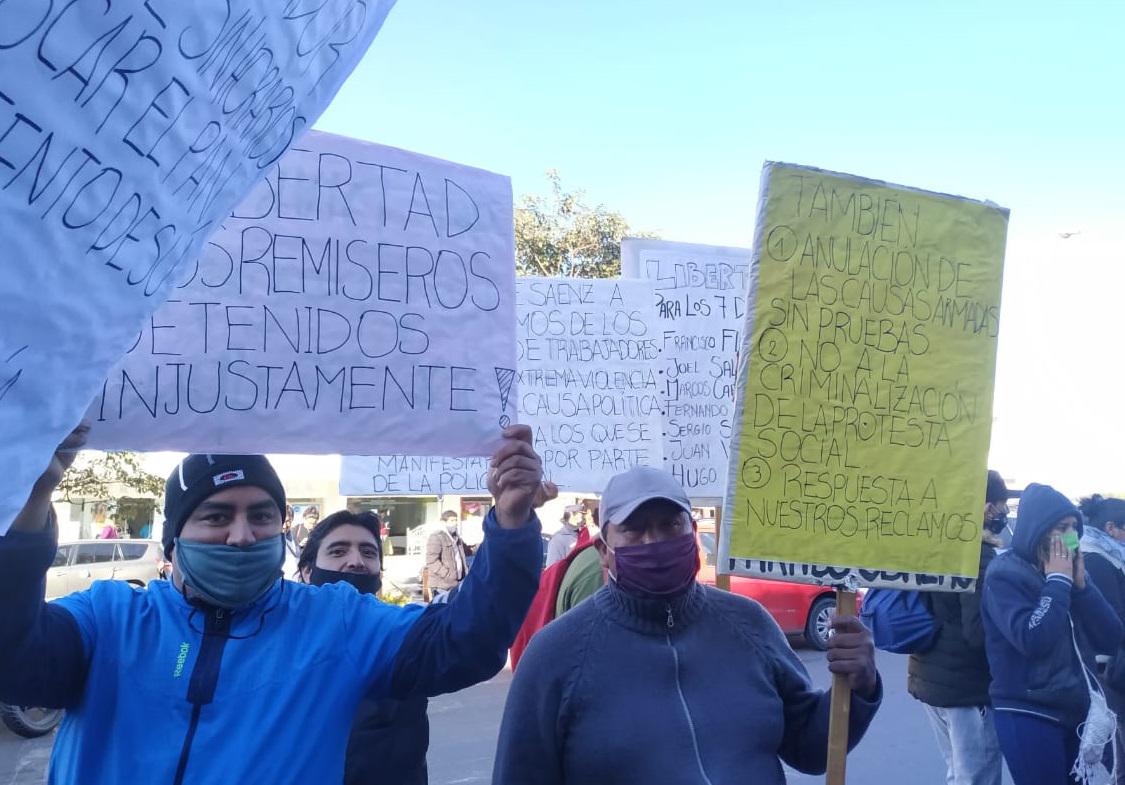 SIN
OCAR EL PAN
ENTO DE SUS
BERTAD
OS REMISEROS
DETENIDOS
INJUSTAMENTE!
SAENZ A
MOS DE LOS
DE TRABAJADORES
XTREMA VIOLENCIA
CAUSA POLÍTICA
A LOS QUE SE
MANIFESTA POR PARTE
DE LA POLIC
LIBERT
PARA LOS 7 D
• FRANCISCO FI
• JOEL SAL
• MARCOS CA
• FERNANDO
• SERGIO S
• JUAN V
• HUGO
TAMBIÉN
① ANULACIÓN DE
LAS CAUSAS ARMADAS
SIN PRUEBAS
② NO A LA
CRIMINALIZACIÓN
DE LA PROTESTA
SOCIAL
③ RESPUESTA A
NUESTROS RECLAMOS
Reebok